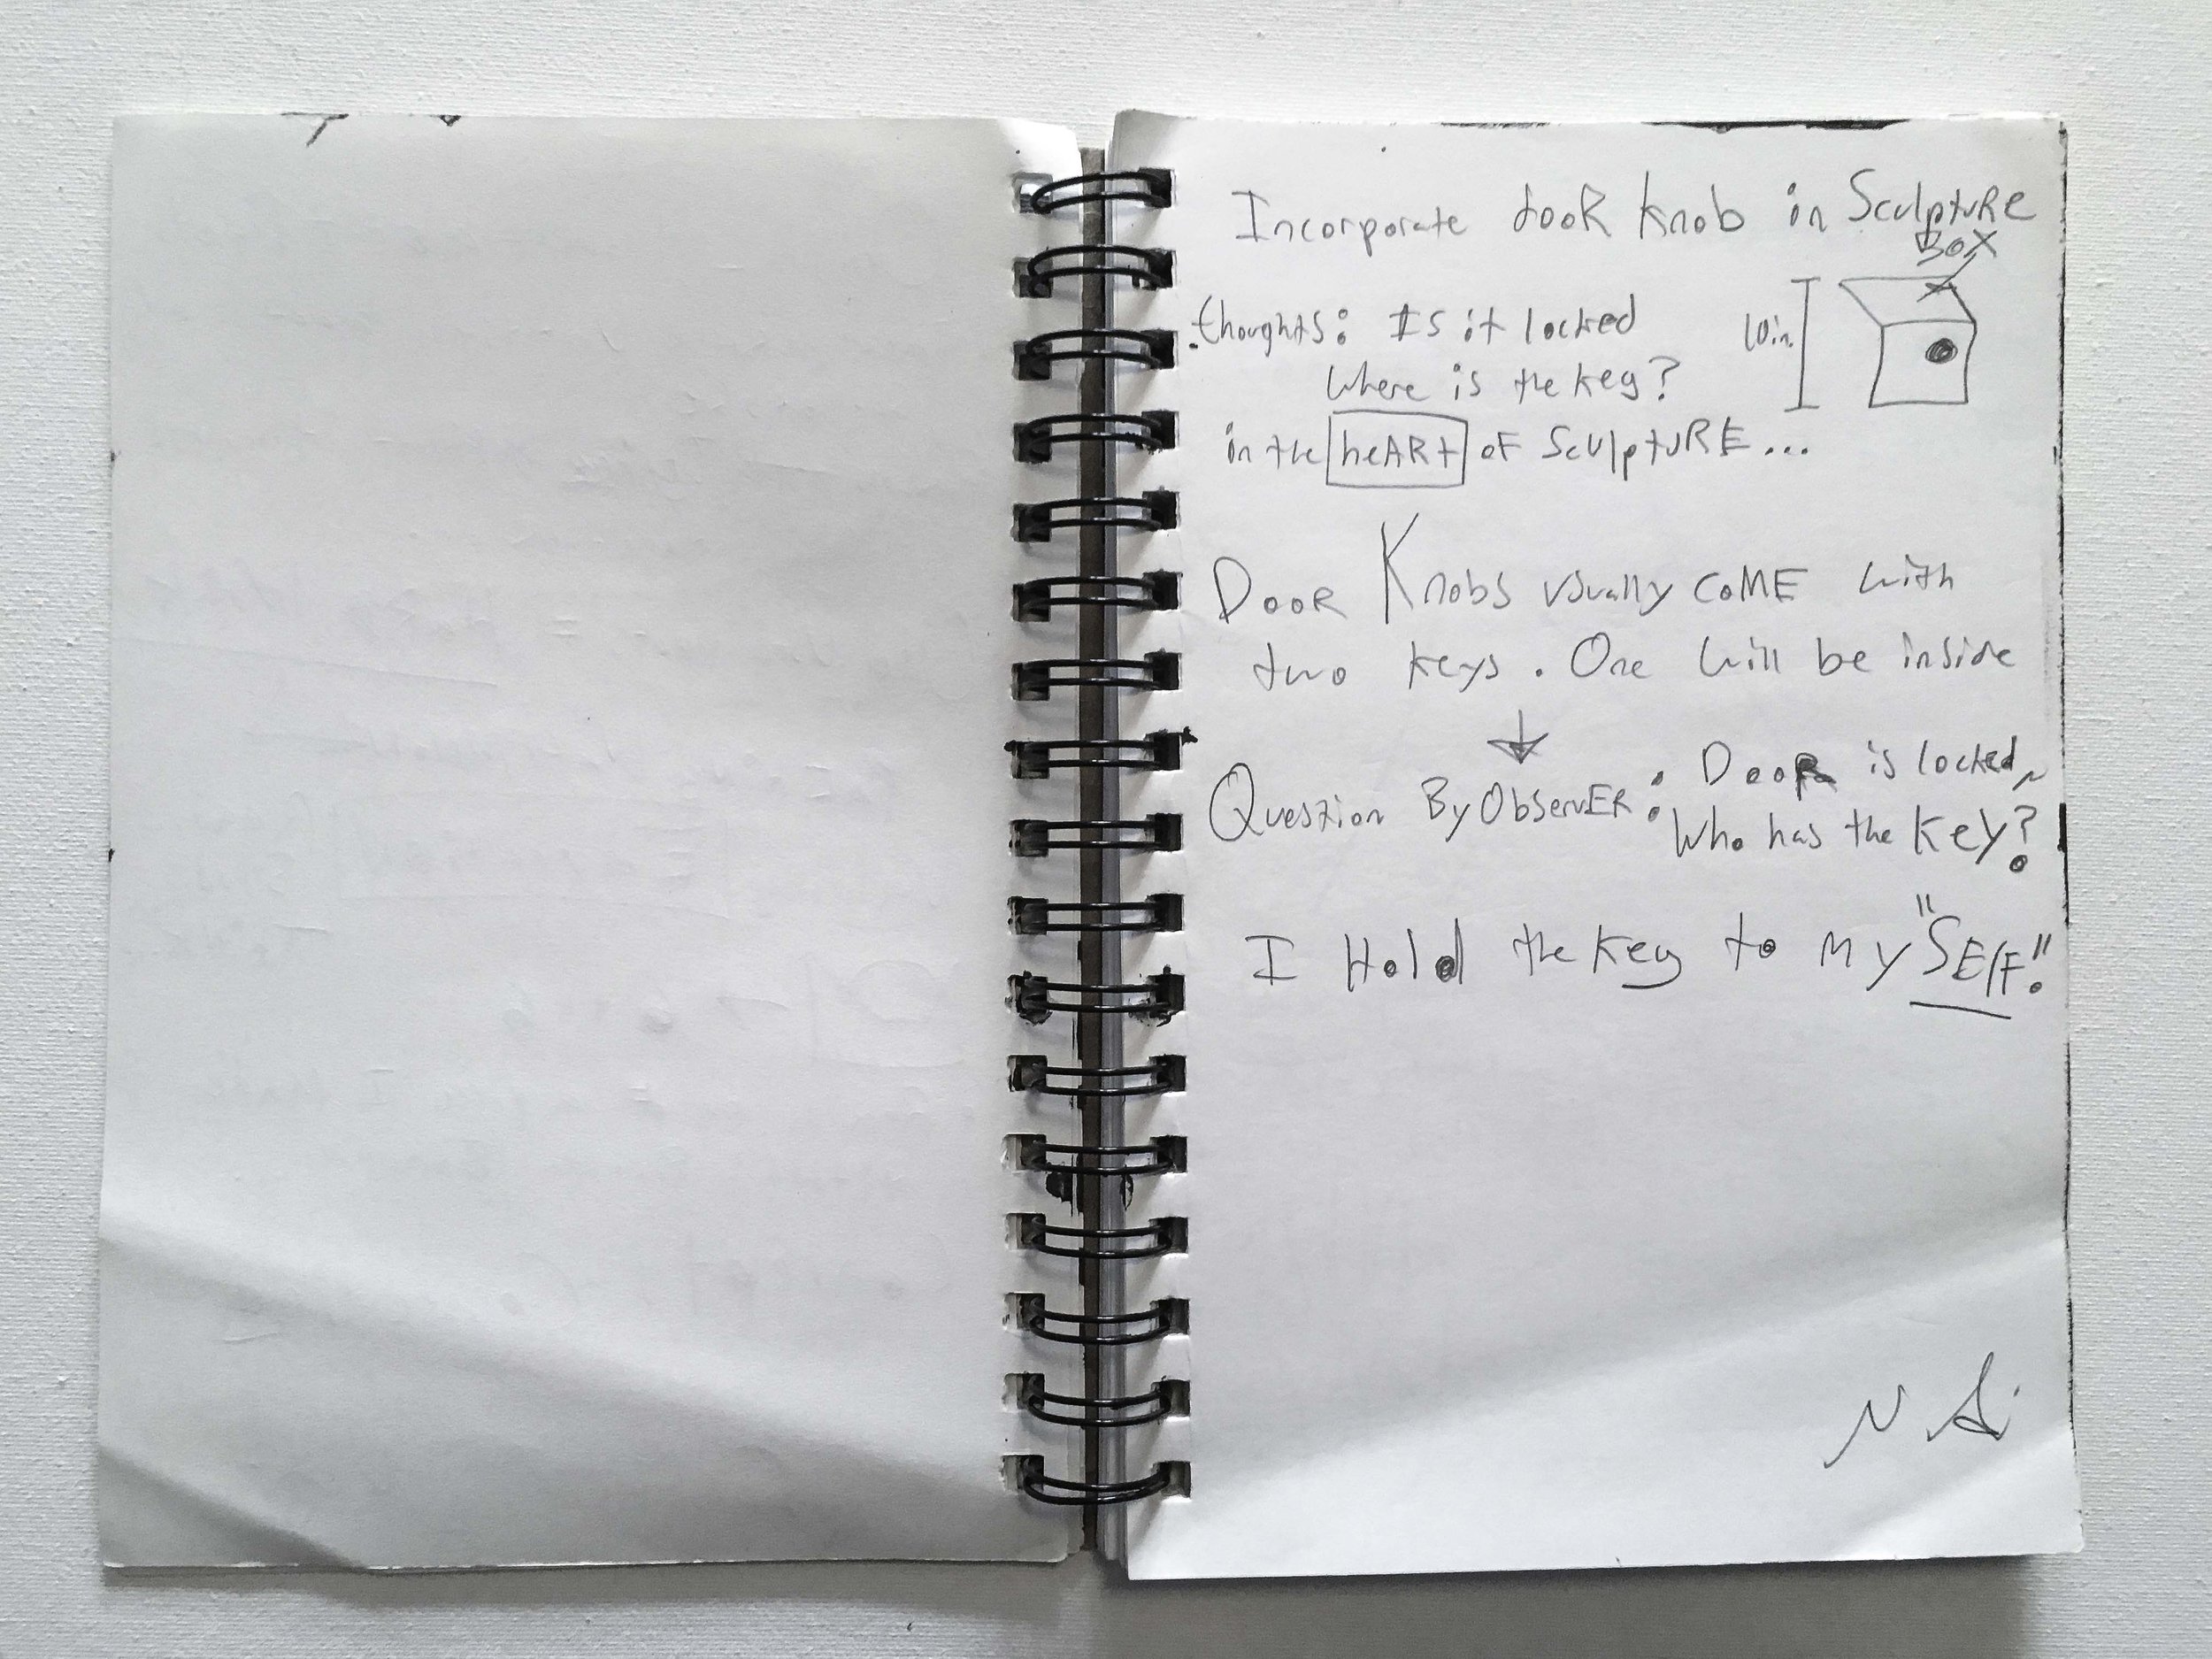 Incorporate dooR knob in SculptuRe
BOX
10in.
thoughts: Is it locked
where is the key?
in the heARt oF SculptuRE...
DooR Knobs usually coME with
two keys. One will be inside
Question By ObservER: DooR is locked,
Who has the key?
I Hold the key to my "SElF."